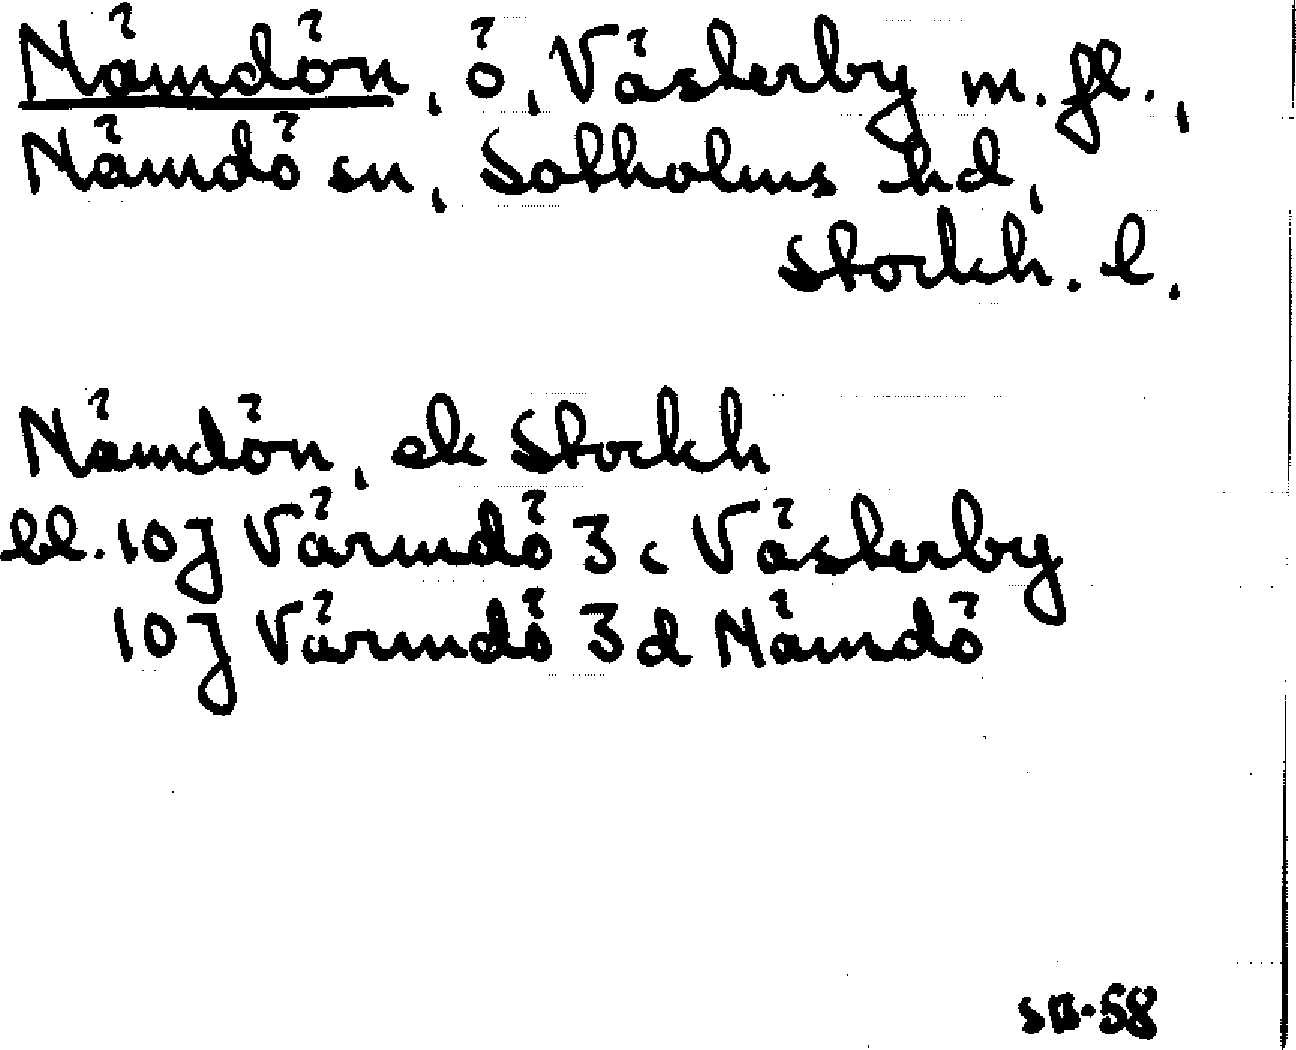 Nämdön, ö, Västerby m. fl.,
Nämdö sn, Sotholms hd,
Stockh. l.
Nämdön, ek Stockh
bl. 10J Värmdö 3 c Västerby
10J Värmdö 3 d Nämdö
SB-58